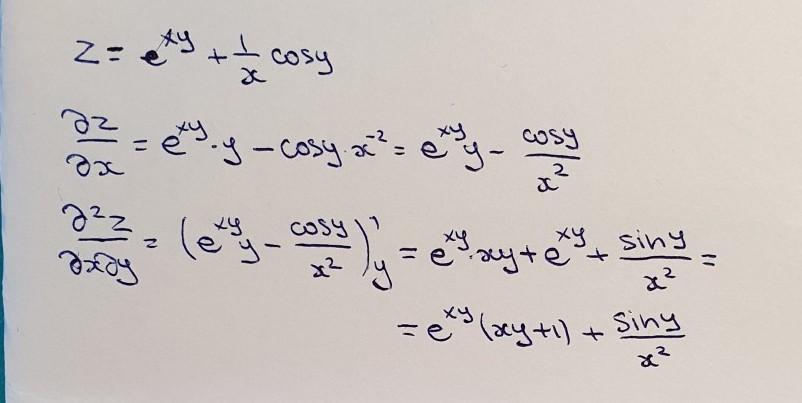 z = e^{xy} + \frac{1}{x} cosy
\frac{∂z}{∂x} = e^{xy} · y − cosy · x^{-2} = e^{xy}y − \frac{cosy}{x^2}
\frac{∂^2z}{∂x∂y} = (e^{xy}y − \frac{cosy}{x^2})'_y = e^{xy} · xy + e^{xy} + \frac{siny}{x^2} =
= e^{xy}(xy+1) + \frac{siny}{x^2}